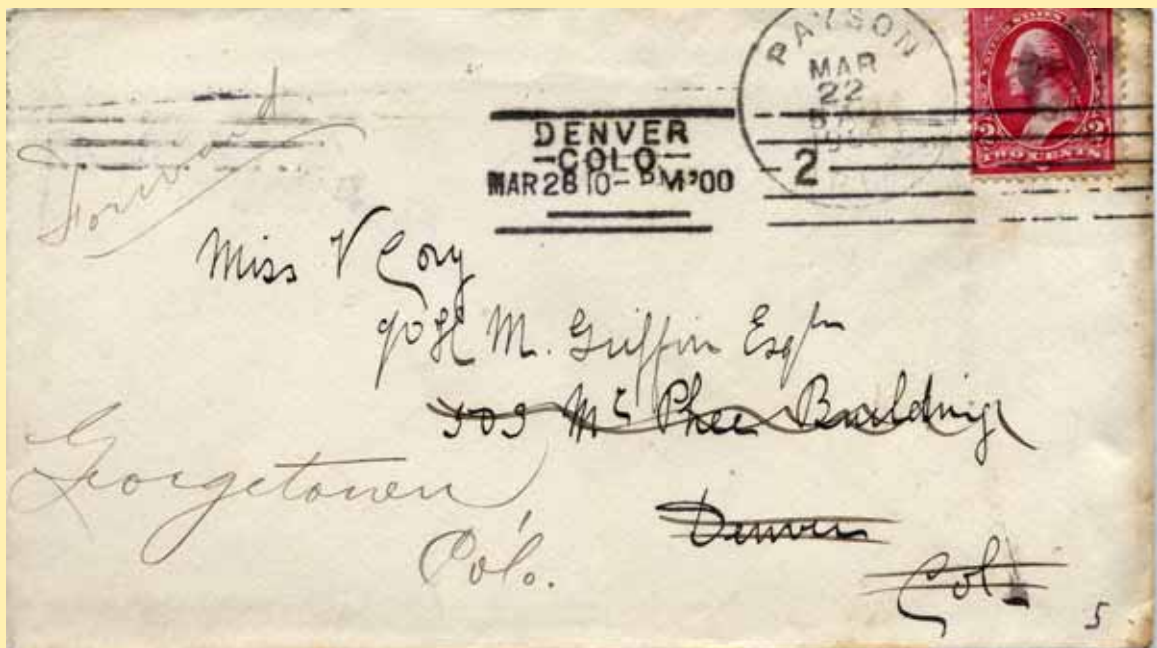 PAYSON
MAR
22
2
TWO CENTS
DENVER
-COLO-
MAR 28 10- PM '00
Forward
Miss V Cory
c/o H M. Griffin Esq
Mc Phee Building
Denver
Col.
Georgetown
Colo.
5